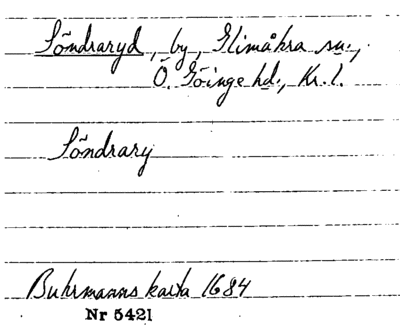 Söndraryd, by, Glimåkra sn:,
Ö. Göinge hd:, Kr. l.
Söndrary
Buhrmanns karta 1684
Nr 5421